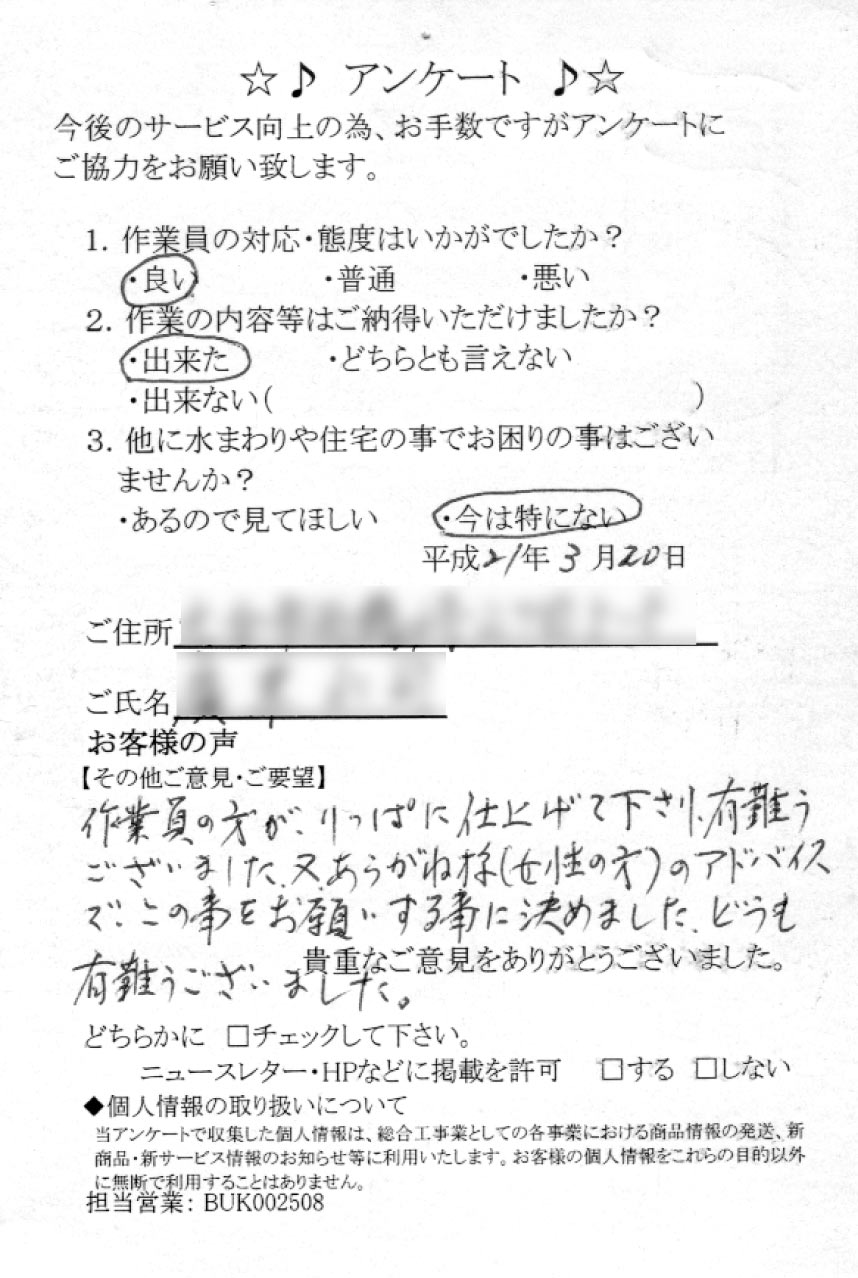 ☆♪ アンケート ♪☆
今後のサービス向上の為、お手数ですがアンケートに
ご協力をお願い致します。
1. 作業員の対応・態度はいかがでしたか？
・良い ・普通 ・悪い
2. 作業の内容等はご納得いただけましたか？
・出来た ・どちらとも言えない
・出来ない( )
3. 他に水まわりや住宅の事でお困りの事はござい
ませんか？
・あるので見てほしい ・今は特にない
平成21年3月20日
ご住所
ご氏名
お客様の声
【その他ご意見・ご要望】
作業員の方が、りっぱに仕上げて下さり、有難う
ございました、又、あらがね様(女性の方)のアドバイス
で、この事をお願いする事に決めました、どうも
有難うございました。
貴重なご意見をありがとうございました。
どちらかに □チェックして下さい。
ニュースレター・HPなどに掲載を許可 □する □しない
◆個人情報の取り扱いについて
当アンケートで収集した個人情報は、総合工事業としての各事業における商品情報の発送、新
商品・新サービス情報のお知らせ等に利用いたします。お客様の個人情報をこれらの目的以外
に無断で利用することはありません。
担当営業: BUK002508